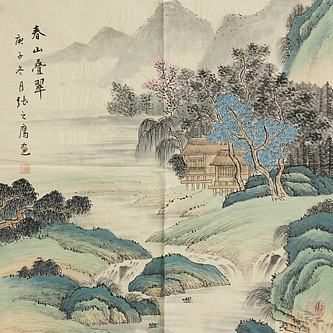 春山叠翠
庚子冬月張之鷹画